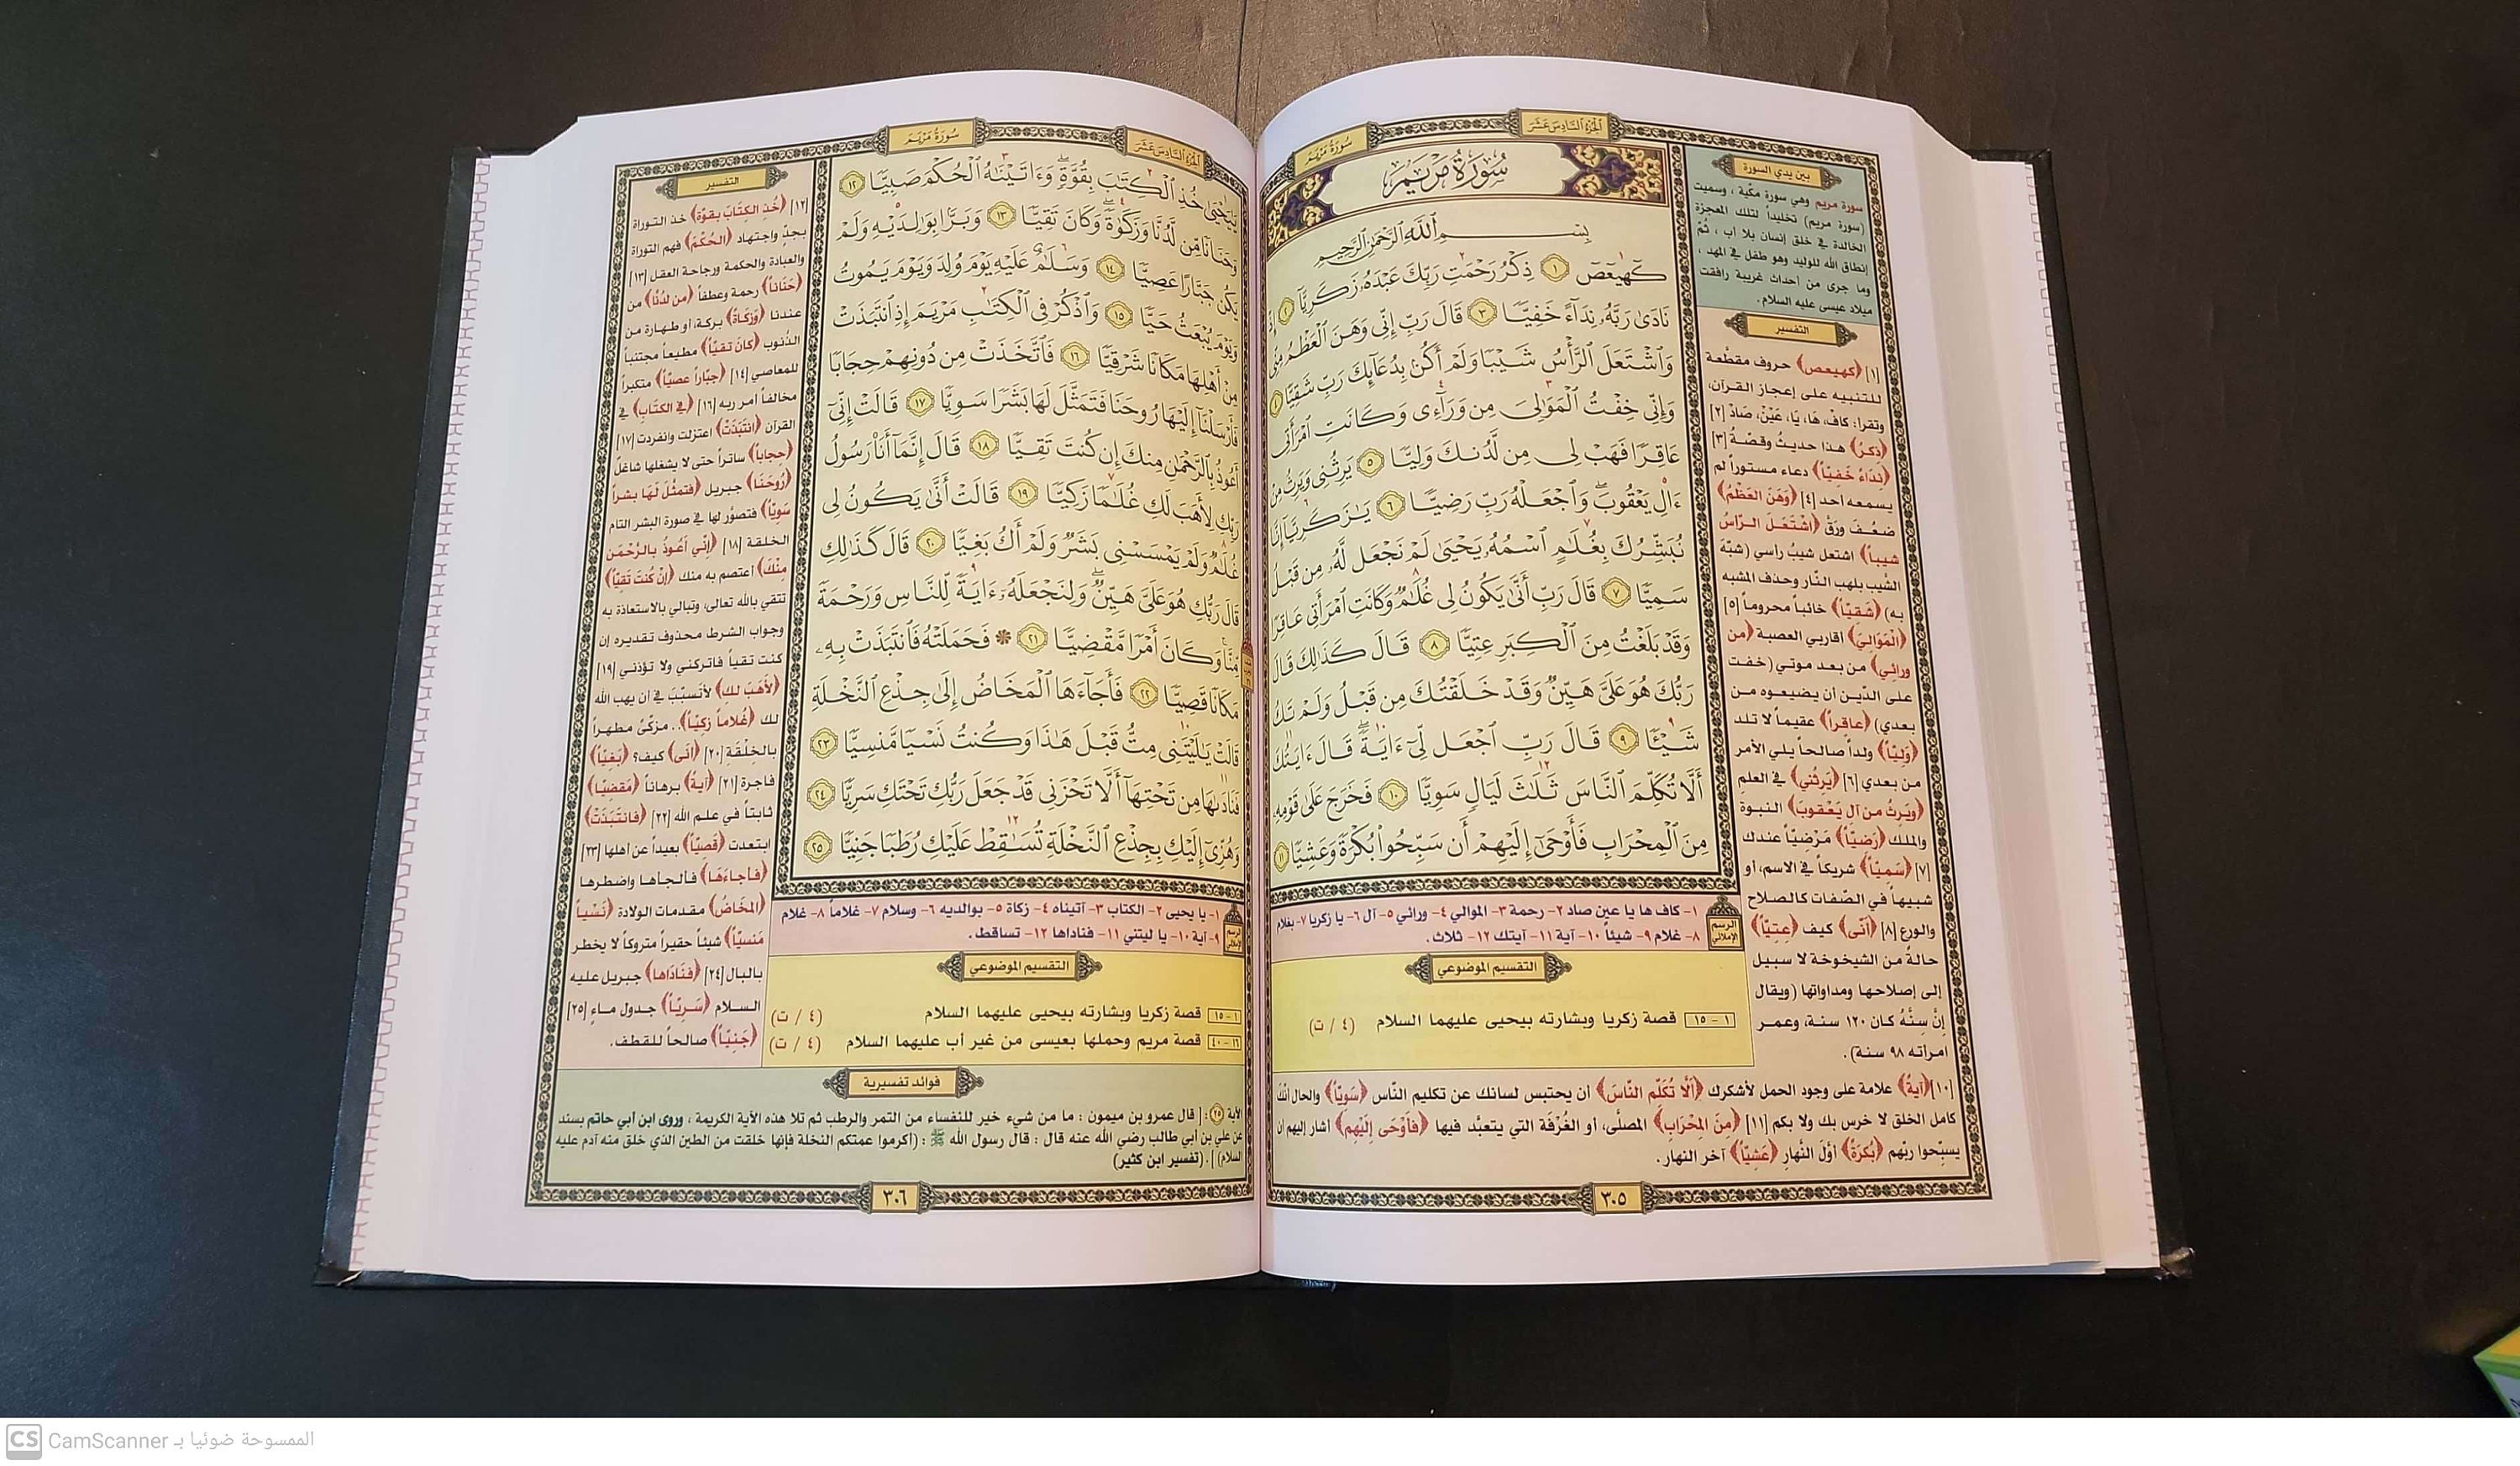 الجزء السادس عشر
سورة مريم
بين يدي السورة
سورة مريم وهي سورة مكّية ، وسميت
(سورة مريم) تخليداً لتلك المعجزة
الخالدة في خلق إنسان بلا أب ، ثُمَّ
إنطاق الله للوليد وهو طفل في المهد ،
وما جرى من أحداث غريبة رافقت
ميلاد عيسى عليه السلام.
التفسير
[١] ﴿كهيعص﴾ حروف مقطّعة
للتنبيه على إعجاز القرآن،
وتقرأ: كافْ، هَا، يَا، عَيْنْ، صَادْ [٢]
﴿ذِكرُ﴾ هذا حديثُ وقصّةُ [٣]
﴿نِدَاءً خَفيّاً﴾ دعاء مستوراً لم
يسمعه أحد [٤] ﴿وَهَنَ العَظْمُ﴾
ضعُفَ ورَقَّ ﴿اشْتَعَلَ الرَّأسُ
شيباً﴾ اشتعل شيبُ رأسي (شبّهَ
الشّيب بلهب النّار وحذف المشبه
به) ﴿شَقيّاً﴾ خائباً محروماً [٥]
﴿الْمَوَاليَ﴾ أقاربي العصبة ﴿من
ورائي﴾ من بعد موتي (خفت
على الدّين أن يضيعوه من
بعدي) ﴿عاقراً﴾ عقيماً لا تلد
﴿وَليّاً﴾ ولداً صالحاً يلي الأمر
من بعدي [٦] ﴿يَرثُني﴾ في العلم
﴿ويَرثُ من آل يَعْقوبَ﴾ النبوة
والملك ﴿رَضيّاً﴾ مَرْضيّاً عندك
[٧] ﴿سَميّاً﴾ شريكاً في الاسم، أو
شبيهاً في الصّفات كالصلاح
والورع [٨] ﴿أنّى﴾ كيف ﴿عِتيّاً﴾
حالةً من الشيخوخة لا سبيل
إلى إصلاحها ومداواتها (ويقال
إنَّ سِنَّهُ كان ١٢٠ سنة، وعمر
امرأته ٩٨ سنة).
سورة مريم
بسم الله الرحمن الرحيم
كٓهيعٓصٓ ١ ذِكْرُ رَحْمَتِ رَبِّكَ عَبْدَهُۥ زَكَرِيَّآ ٢ إِذْ
نَادَىٰ رَبَّهُۥ نِدَآءً خَفِيًّا ٣ قَالَ رَبِّ إِنِّي وَهَنَ ٱلْعَظْمُ مِنِّي
وَٱشْتَعَلَ ٱلرَّأْسُ شَيْبًا وَلَمْ أَكُنۢ بِدُعَآئِكَ رَبِّ شَقِيًّا ٤
وَإِنِّي خِفْتُ ٱلْمَوَٰلِيَ مِن وَرَآءِي وَكَانَتِ ٱمْرَأَتِي
عَاقِرًا فَهَبْ لِي مِن لَّدُنكَ وَلِيًّا ٥ يَرِثُنِي وَيَرِثُ مِنْ
ءَالِ يَعْقُوبَ ۖ وَٱجْعَلْهُ رَبِّ رَضِيًّا ٦ يَٰزَكَرِيَّآ إِنَّا
نُبَشِّرُكَ بِغُلَٰمٍ ٱسْمُهُۥ يَحْيَىٰ لَمْ نَجْعَل لَّهُۥ مِن قَبْلُ
سَمِيًّا ٧ قَالَ رَبِّ أَنَّىٰ يَكُونُ لِي غُلَٰمٌ وَكَانَتِ ٱمْرَأَتِي عَاقِرًا
وَقَدْ بَلَغْتُ مِنَ ٱلْكِبَرِ عِتِيًّا ٨ قَالَ كَذَٰلِكَ قَالَ
رَبُّكَ هُوَ عَلَيَّ هَيِّنٌ وَقَدْ خَلَقْتُكَ مِن قَبْلُ وَلَمْ تَكُ
شَيْـًٔا ٩ قَالَ رَبِّ ٱجْعَل لِّيٓ ءَايَةً ۚ قَالَ ءَايَتُكَ
أَلَّا تُكَلِّمَ ٱلنَّاسَ ثَلَٰثَ لَيَالٍ سَوِيًّا ١٠ فَخَرَجَ عَلَىٰ قَوْمِهِۦ
مِنَ ٱلْمِحْرَابِ فَأَوْحَىٰٓ إِلَيْهِمْ أَن سَبِّحُوا۟ بُكْرَةً وَعَشِيًّا ١١
الرسم الإملائي
١- كاف ها يا عين صاد ٢- رحمة ٣- الموالي ٤- ورائي ٥- آل ٦- يا زكريا ٧- بغلام
٨- غلام ٩- شيئاً ١٠- آية ١١- آيتك ١٢- ثلاث.
التقسيم الموضوعي
١ - ١٥ قصة زكريا وبشارته بيحيى عليهما السلام (٤ / ت)
[١٠] ﴿آيةً﴾ علامة على وجود الحمل لأشكرك ﴿ألاَّ تُكَلّم النّاسَ﴾ أن يحتبس لسانك عن تكليم النّاس ﴿سَويّاً﴾ والحال أنّك
كامل الخلق لا خرس بك ولا بكم [١١] ﴿مِنَ المِحْرَابِ﴾ المصلَّى، أو الغُرْفَة التي يتعبَّد فيها ﴿فأوْحَى إلَيْهِم﴾ أشار إليهم أن
يسبّحوا ربّهم ﴿بُكرَةً﴾ أوَّلَ النَّهارِ ﴿عَشيّاً﴾ آخر النهار.
٣٠٥
الجزء السادس عشر
سورة مريم
يَٰيَحْيَىٰ خُذِ ٱلْكِتَٰبَ بِقُوَّةٍ ۖ وَءَاتَيْنَٰهُ ٱلْحُكْمَ صَبِيًّا ١٢
وَحَنَانًا مِّن لَّدُنَّا وَزَكَوٰةً ۖ وَكَانَ تَقِيًّا ١٣ وَبَرًّۢا بِوَٰلِدَيْهِ وَلَمْ
يَكُن جَبَّارًا عَصِيًّا ١٤ وَسَلَٰمٌ عَلَيْهِ يَوْمَ وُلِدَ وَيَوْمَ يَمُوتُ
وَيَوْمَ يُبْعَثُ حَيًّا ١٥ وَٱذْكُرْ فِي ٱلْكِتَٰبِ مَرْيَمَ إِذِ ٱنتَبَذَتْ
مِنْ أَهْلِهَا مَكَانًا شَرْقِيًّا ١٦ فَٱتَّخَذَتْ مِن دُونِهِمْ حِجَابًا
فَأَرْسَلْنَآ إِلَيْهَا رُوحَنَا فَتَمَثَّلَ لَهَا بَشَرًا سَوِيًّا ١٧ قَالَتْ إِنِّيٓ
أَعُوذُ بِٱلرَّحْمَٰنِ مِنكَ إِن كُنتَ تَقِيًّا ١٨ قَالَ إِنَّمَآ أَنَا۠ رَسُولُ
رَبِّكِ لِأَهَبَ لَكِ غُلَٰمًا زَكِيًّا ١٩ قَالَتْ أَنَّىٰ يَكُونُ لِي
غُلَٰمٌ وَلَمْ يَمْسَسْنِي بَشَرٌ وَلَمْ أَكُ بَغِيًّا ٢٠ قَالَ كَذَٰلِكِ
قَالَ رَبُّكِ هُوَ عَلَيَّ هَيِّنٌ ۖ وَلِنَجْعَلَهُۥٓ ءَايَةً لِّلنَّاسِ وَرَحْمَةً
مِّنَّا ۚ وَكَانَ أَمْرًا مَّقْضِيًّا ٢١ ۞ فَحَمَلَتْهُ فَٱنتَبَذَتْ بِهِۦ
مَكَانًا قَصِيًّا ٢٢ فَأَجَآءَهَا ٱلْمَخَاضُ إِلَىٰ جِذْعِ ٱلنَّخْلَةِ
قَالَتْ يَٰلَيْتَنِي مِتُّ قَبْلَ هَٰذَا وَكُنتُ نَسْيًا مَّنسِيًّا ٢٣
فَنَادَىٰهَا مِن تَحْتِهَآ أَلَّا تَحْزَنِي قَدْ جَعَلَ رَبُّكِ تَحْتَكِ سَرِيًّا ٢٤
وَهُزِّيٓ إِلَيْكِ بِجِذْعِ ٱلنَّخْلَةِ تُسَٰقِطْ عَلَيْكِ رُطَبًا جَنِيًّا ٢٥
التفسير
[١٢] ﴿خُذ الكتَابَ بقوَّة﴾ خذ التوراة
بجدٍّ واجتهاد ﴿الحُكْمَ﴾ فهم التوراة
والعبادة والحكمة ورجاحة العقل [١٣]
﴿حَنَاناً﴾ رحمة وعطفاً ﴿من لدُنَّا﴾ من
عندنا ﴿وَزكَاةً﴾ بركة، أو طهارة من
الذّنوب ﴿كَانَ تَقيّاً﴾ مطيعاً مجتنباً
للمعاصي [١٤] ﴿جبّاراً عصيّاً﴾ متكبراً
مخالفاً أمر ربه [١٦] ﴿في الكتَابِ﴾ في
القرآن ﴿انتَبَذَتْ﴾ اعتزلت وانفردت [١٧]
﴿حِجاباً﴾ ساتراً حتى لا يشغلها شاغلٌ
﴿رُوحَنَا﴾ جبريل ﴿فتمثَّلَ لَهَا بشراً
سَويّاً﴾ فتصوَّر لها في صورة البشر التام
الخلقة [١٨] ﴿إنّي أعُوذُ بالرَّحْمَن
مِنْكَ﴾ اعتصم به منك ﴿إنْ كُنتَ تَقيّاً﴾
تتقي بالله تعالى، وتبالي بالاستعاذة به
وجواب الشرط محذوف تقديره إن
كنت تقياً فاتركني ولا تؤذني [١٩]
﴿لأهَبَ لك﴾ لأتسبّبَ في أن يهب الله
لك ﴿غُلاماً زكيّاً﴾.. مزكّىً مطهراً
بالخِلْقَة [٢٠] ﴿أنّى﴾ كيف؟ ﴿بَغيّاً﴾
فاجرة [٢١] ﴿آيةً﴾ برهاناً ﴿مَقضيّا﴾
ثابتاً في علم الله [٢٢] ﴿فانتَبَذَتْ﴾
ابتعدت ﴿قَصيّاً﴾ بعيداً عن أهلها [٢٣]
﴿فأجاءَهَا﴾ فألجأها واضطرها
﴿المَخَاضُ﴾ مقدمات الولادة ﴿نَسْياً
مَنسيّاً﴾ شيئاً حقيراً متروكاً لا يخطر
بالبال [٢٤] ﴿فنَادَاها﴾ جبريل عليه
السلام ﴿سَريّاً﴾ جدول ماءٍ [٢٥]
﴿جَنيّاً﴾ صالحاً للقطف.
الرسم الإملائي
١- يا يحيى ٢- الكتاب ٣- آتيناه ٤- زكاة ٥- بوالديه ٦- وسلام ٧- غلاماً ٨- غلام
٩- آية ١٠- يا ليتني ١١- فناداها ١٢- تساقط.
التقسيم الموضوعي
١ - ١٥ قصة زكريا وبشارته بيحيى عليهما السلام (٤ / ت)
١٦ - ٤٠ قصة مريم وحملها بعيسى من غير أب عليهما السلام (٤ / ت)
فوائد تفسيرية
الآية ٢٥: [ قال عمرو بن ميمون : ما من شيء خير للنفساء من التمر والرطب ثم تلا هذه الآية الكريمة ، وروى ابن أبي حاتم بسند
عن علي بن أبي طالب رضي الله عنه قال : قال رسول الله ﷺ : (أكرموا عمتكم النخلة فإنها خلقت من الطين الذي خلق منه آدم عليه
السلام) ]. (تفسير ابن كثير)
٣٠٦
CS CamScanner الممسوحة ضوئيا بـ